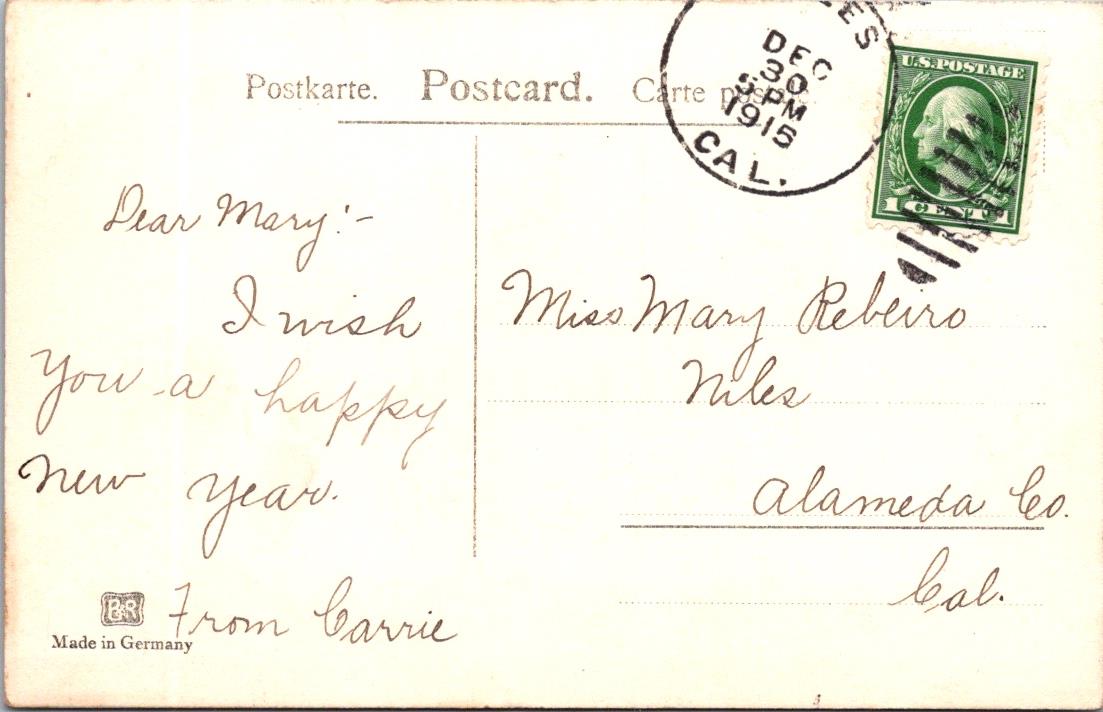 Postkarte. Postcard. Carte postale.
DEC
30
5 PM
1915
CAL.
U.S. POSTAGE
1 CENT 1
Dear Mary:-
I wish
you a happy
new year.
From Carrie
Miss Mary Rebeiro
Niles
Alameda Co.
Cal.
B&R
Made in Germany